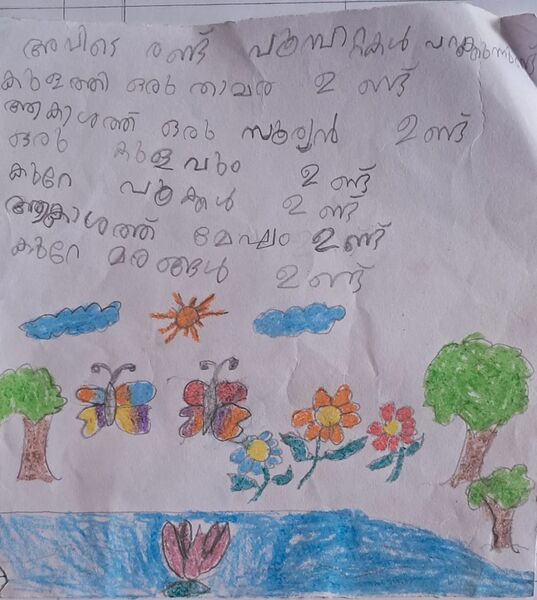 അവിടെ രണ്ട് പൂമ്പാറ്റകൾ പറക്കുന്നുണ്ട്
കുളത്തി ഒരു താമര ഉണ്ട്
ആകാശത്ത് ഒരു സൂര്യൻ ഉണ്ട്
ഒരു കുളവും ഉണ്ട്
കുറേ പൂക്കൾ ഉണ്ട്
ആകാശത്ത് മേഘം ഉണ്ട്
കുറേ മരങ്ങൾ ഉണ്ട്